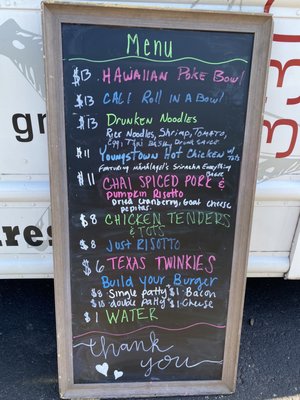 Menu
$13 HAWAIIAN POKE BOWL
$13 CALI ROLL IN A BOWL
$13 DRUNKEN NOODLES
RICE NOODLES, SHRIMP, TOMATO,
THAI BASIL, DRUNK SAUCE
$11 YOUNGSTOWN HOT CHICKEN w/ TOTS
FEATURING Sriracha EVERYTHING
Sauce
$11 CHAI SPICED PORK &
PUMPKIN RISOTTO
Dried cranberry, Goat cheese
pepitas
$8 CHICKEN TENDERS
& TOTS
$8 JUST RISOTTO
$6 TEXAS TWINKIES
Build your Burger
$8 Single patty $1-Bacon
$10 double patty $1-Cheese
$1 WATER
thank
you
gr
res
330